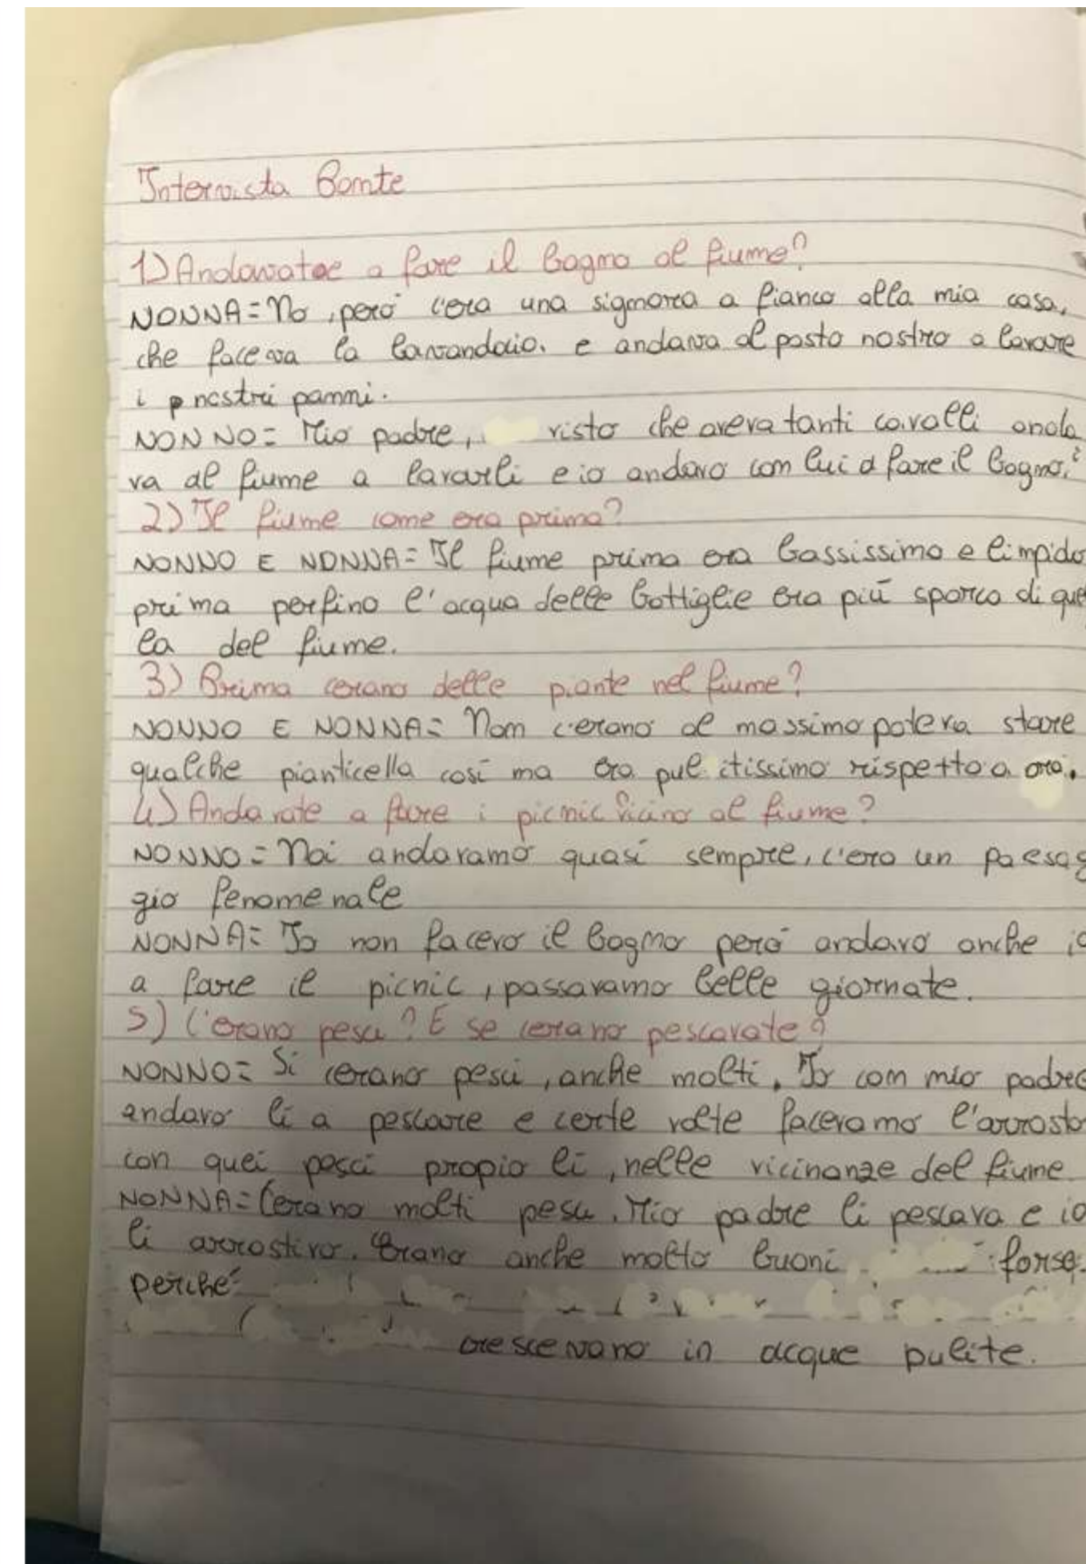 Intervista Bomte
1) Andavatae a fare il bagno al fiume?
NONNA= No, però c'era una signora a fianco alla mia casa,
che faceva la lavandaia. e andava al posto nostro a lavare
i nostri panni.
NONNO= Mio padre, visto che aveva tanti cavalli anda
va al fiume a lavarli e io andavo con lui a fare il bagno.
2) Il fiume come era prima?
NONNO E NONNA= Il fiume prima era bassissimo e limpido
prima perfino l'acqua delle bottiglie era più sporca di que
la del fiume.
3) Prima cerano delle piante nel fiume?
NONNO E NONNA= Non c'erano al massimo poteva stare
qualche pianticella così ma era pulitissimo rispetto a ora.
4) Andavate a fare i picnic vicino al fiume?
NONNO= Noi andavamo quasi sempre, c'era un paesag
gio fenomenale
NONNA= Io non facevo il bagno però andavo anche io
a fare il picnic, passavamo belle giornate.
5) C'erano pesci? E se cerano pescavate?
NONNO= Si cerano pesci, anche molti. Io con mio padre
andavo li a pescare e certe volte facevamo l'arrosto
con quei pesci propio li, nelle vicinanze del fiume.
NONNA= Cerano molti pesci. Mio padre li pescava e io
li arrostivo. Erano anche molto buoni forse
perché
crescevano in acque pulite.